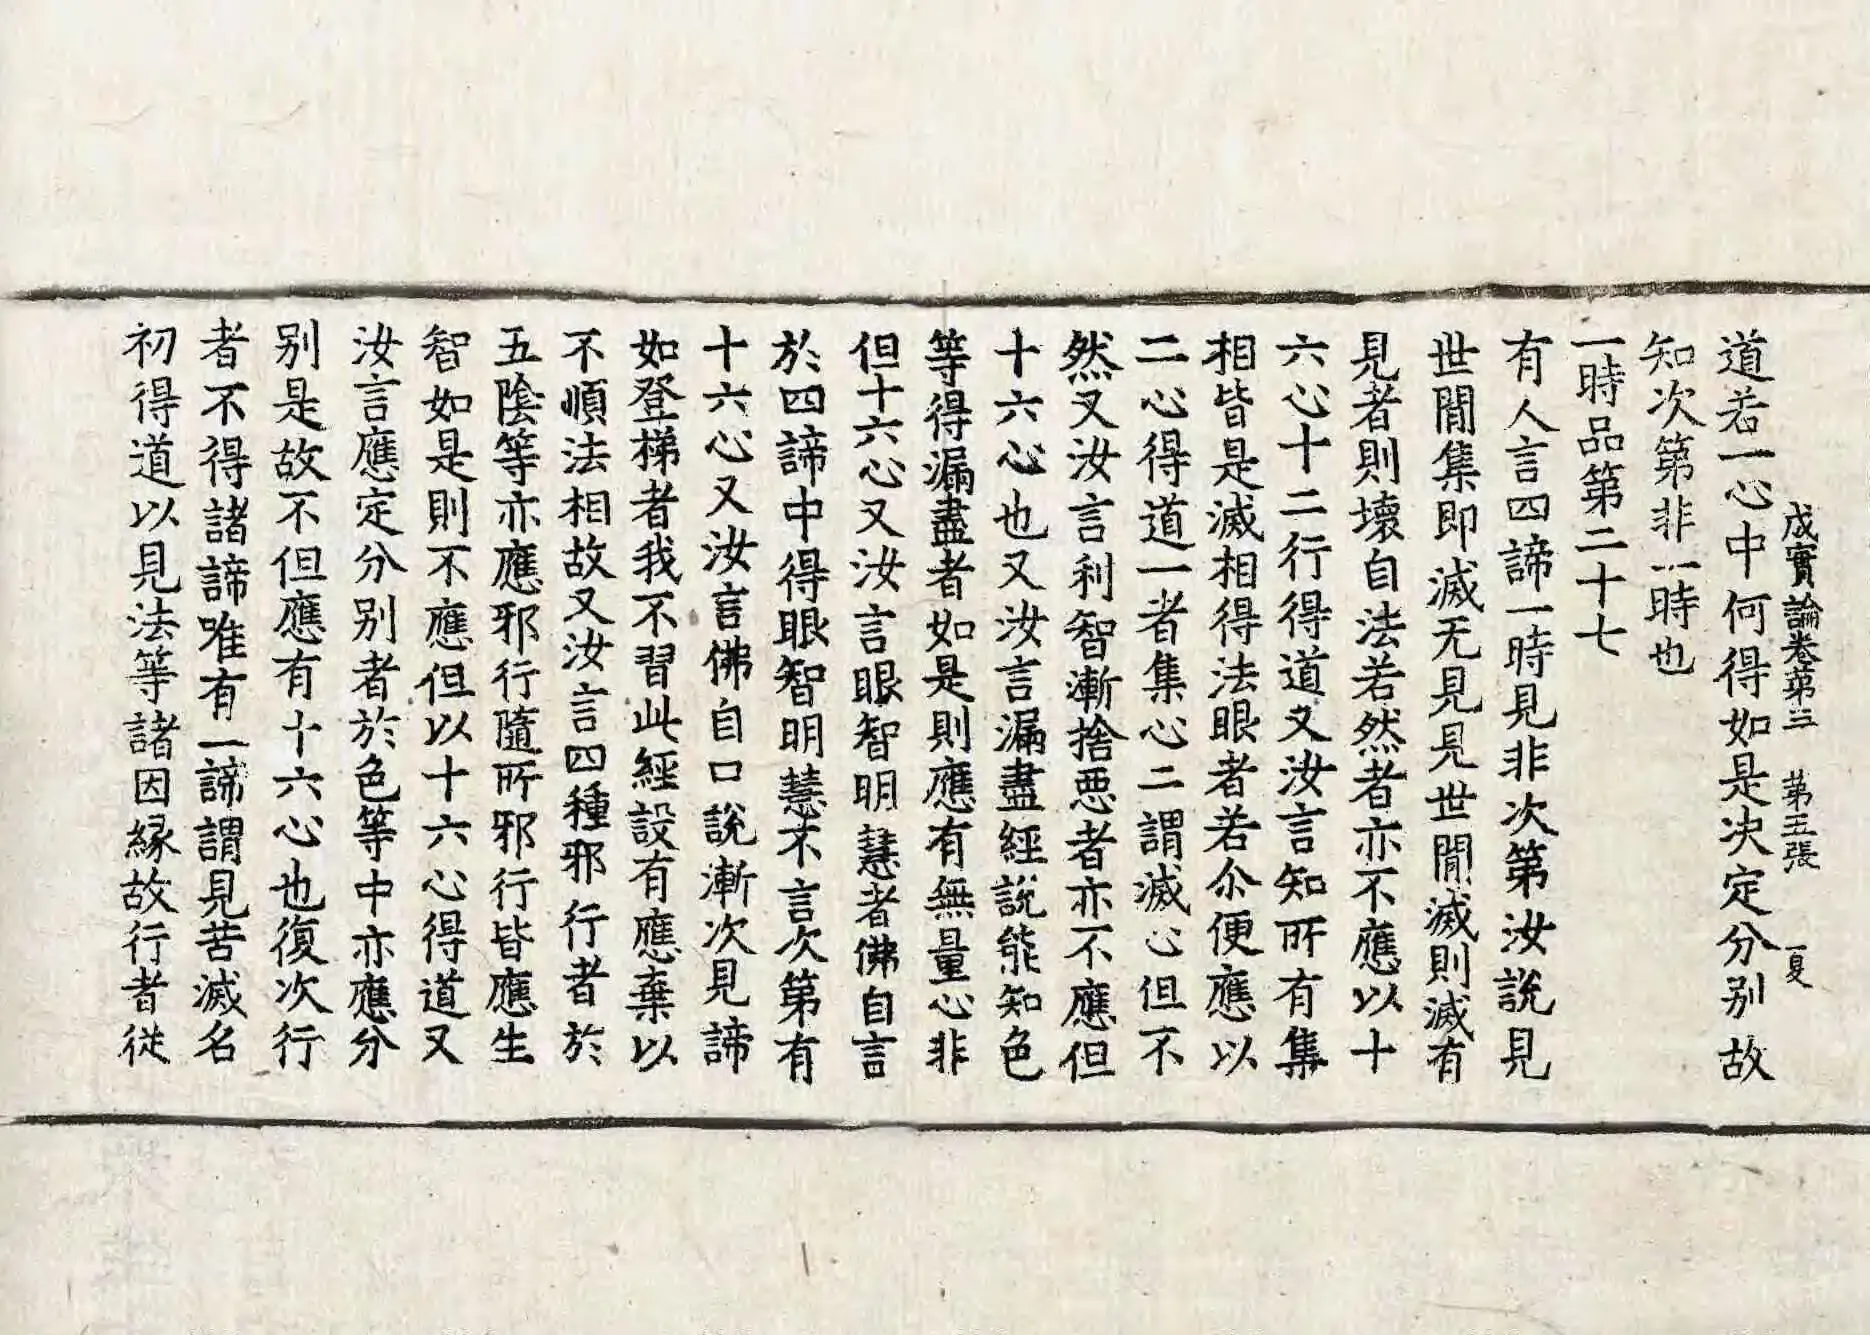 成實論卷第三　第五張　夏
道若一心中何得如是决定分别故
知次第非一時也
一時品第二十七
有人言四諦一時見非次第汝說見
世間集即滅无見見世間滅則滅有
見者則壞自法若然者亦不應以十
六心十二行得道又汝言知所有集
相皆是滅相得法眼者若尒便應以
二心得道一者集心二謂滅心但不
然又汝言利智漸捨惡者亦不應但
十六心也又汝言漏盡經說能知色
等得漏盡者如是則應有無量心非
但十六心又汝言眼智明慧者佛自言
於四諦中得眼智明慧不言次第有
十六心又汝言佛自口說漸次見諦
如登梯者我不習此經設有應棄以
不順法相故又汝言四種邪行者於
五陰等亦應邪行隨所邪行皆應生
智如是則不應但以十六心得道又
汝言應定分别者於色等中亦應分
别是故不但應有十六心也復次行
者不得諸諦唯有一諦謂見苦滅名
初得道以見法等諸因縁故行者従